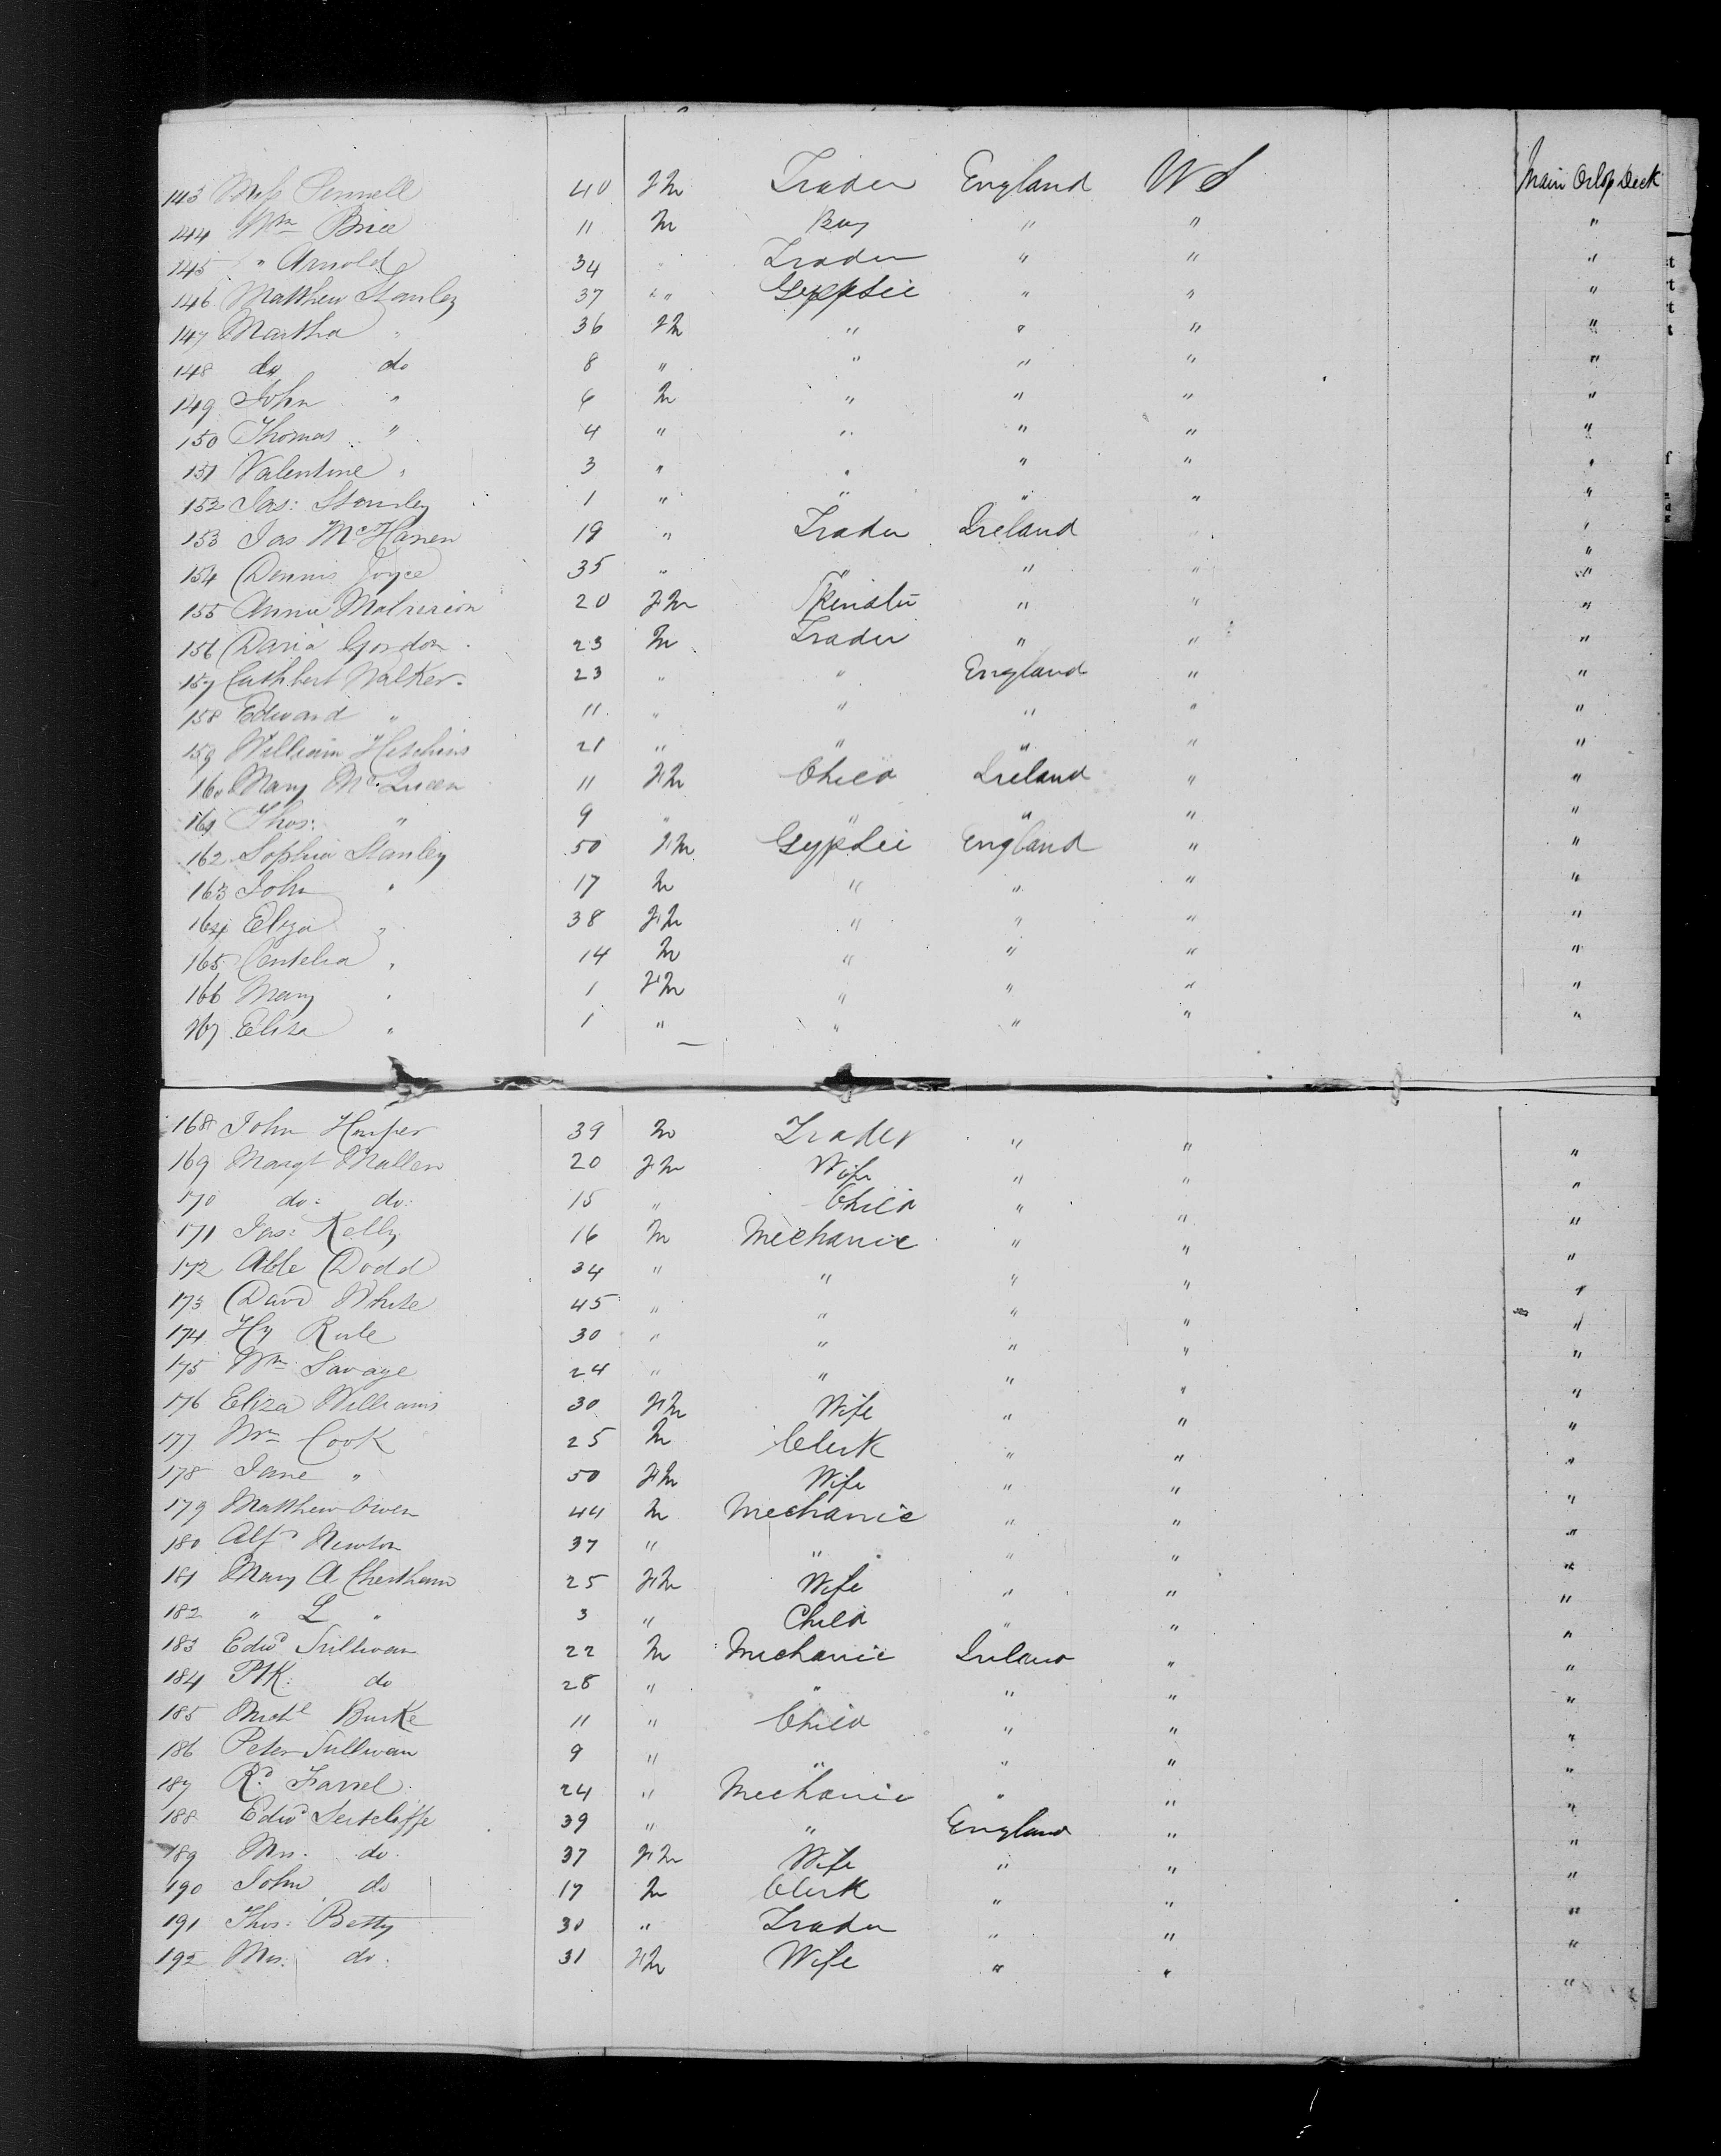 143 Miss Pennell 40 Fm Trader England U S Main Orlop Deck
144 Wm Brice 11 M Boy " " "
145 " Arnold 34 " Trader " " "
146 Matthew Stanley 37 " " Gypsie " " "
147 Martha " 36 Fm " " " "
148 do do 8 " " " " "
149 John " 6 M " " " "
150 Thomas " 4 " " " " "
151 Valentine " 3 " " " " "
152 Jas: Stanley 1 " " " " "
153 Jas McHanen 19 " Trader Ireland " "
154 Dennis Joyce 35 " " " " "
155 Annie 20 Fm Spinster " " "
156 David Gordon 23 M Trader " " "
157 Cuthbert Walker 23 " " England " "
158 Edward " 11 " " " " "
159 William Hitchins 21 " " " " "
160 Mary McQueen 11 Fm Child Ireland " "
161 Thos: " 9 " " " " "
162 Sophia Stanley 50 Fm Gypsie England " "
163 John " 17 M " " " "
164 Eliza " 38 Fm " " " "
165 " 14 M " " " "
166 Mary " 1 Fm " " " "
167 Eliza " 1 " " " " "
168 John Harper 39 M Trader " " "
169 Margt Mullen 20 Fm Wife " " "
170 do: do: 15 " Child " " "
171 Jas: Kelly 16 M Mechanic " " "
172 Able Dodd 34 " " " " "
173 David White 45 " " " " "
174 Hy Rule 30 " " " " "
175 Wm Savage 24 " " " " "
176 Eliza Williams 30 Fm Wife " " "
177 Wm Cook 25 M Clerk " " "
178 Jane " 50 Fm Wife " " "
179 Matthew Owen 44 M Mechanic " " "
180 Alfd Newton 37 " " " " "
181 Mary A Cheetham 25 Fm Wife " " "
182 " L " 3 " Child " " "
183 Edwd Sullivan 22 M Mechanic Ireland " "
184 Ptk: do 28 " " " " "
185 Michl Burke 11 " Child " " "
186 Peter Sullivan 9 " " " " "
187 Rd. Farrel 24 " Mechanic " " "
188 Edwd Sutcliffe 39 " " England " "
189 Mrs. do. 37 Fm Wife " " "
190 John do 17 M Clerk " " "
191 Thos: Betty 30 " Trader " " "
192 Mrs. do. 31 Fm Wife " " "